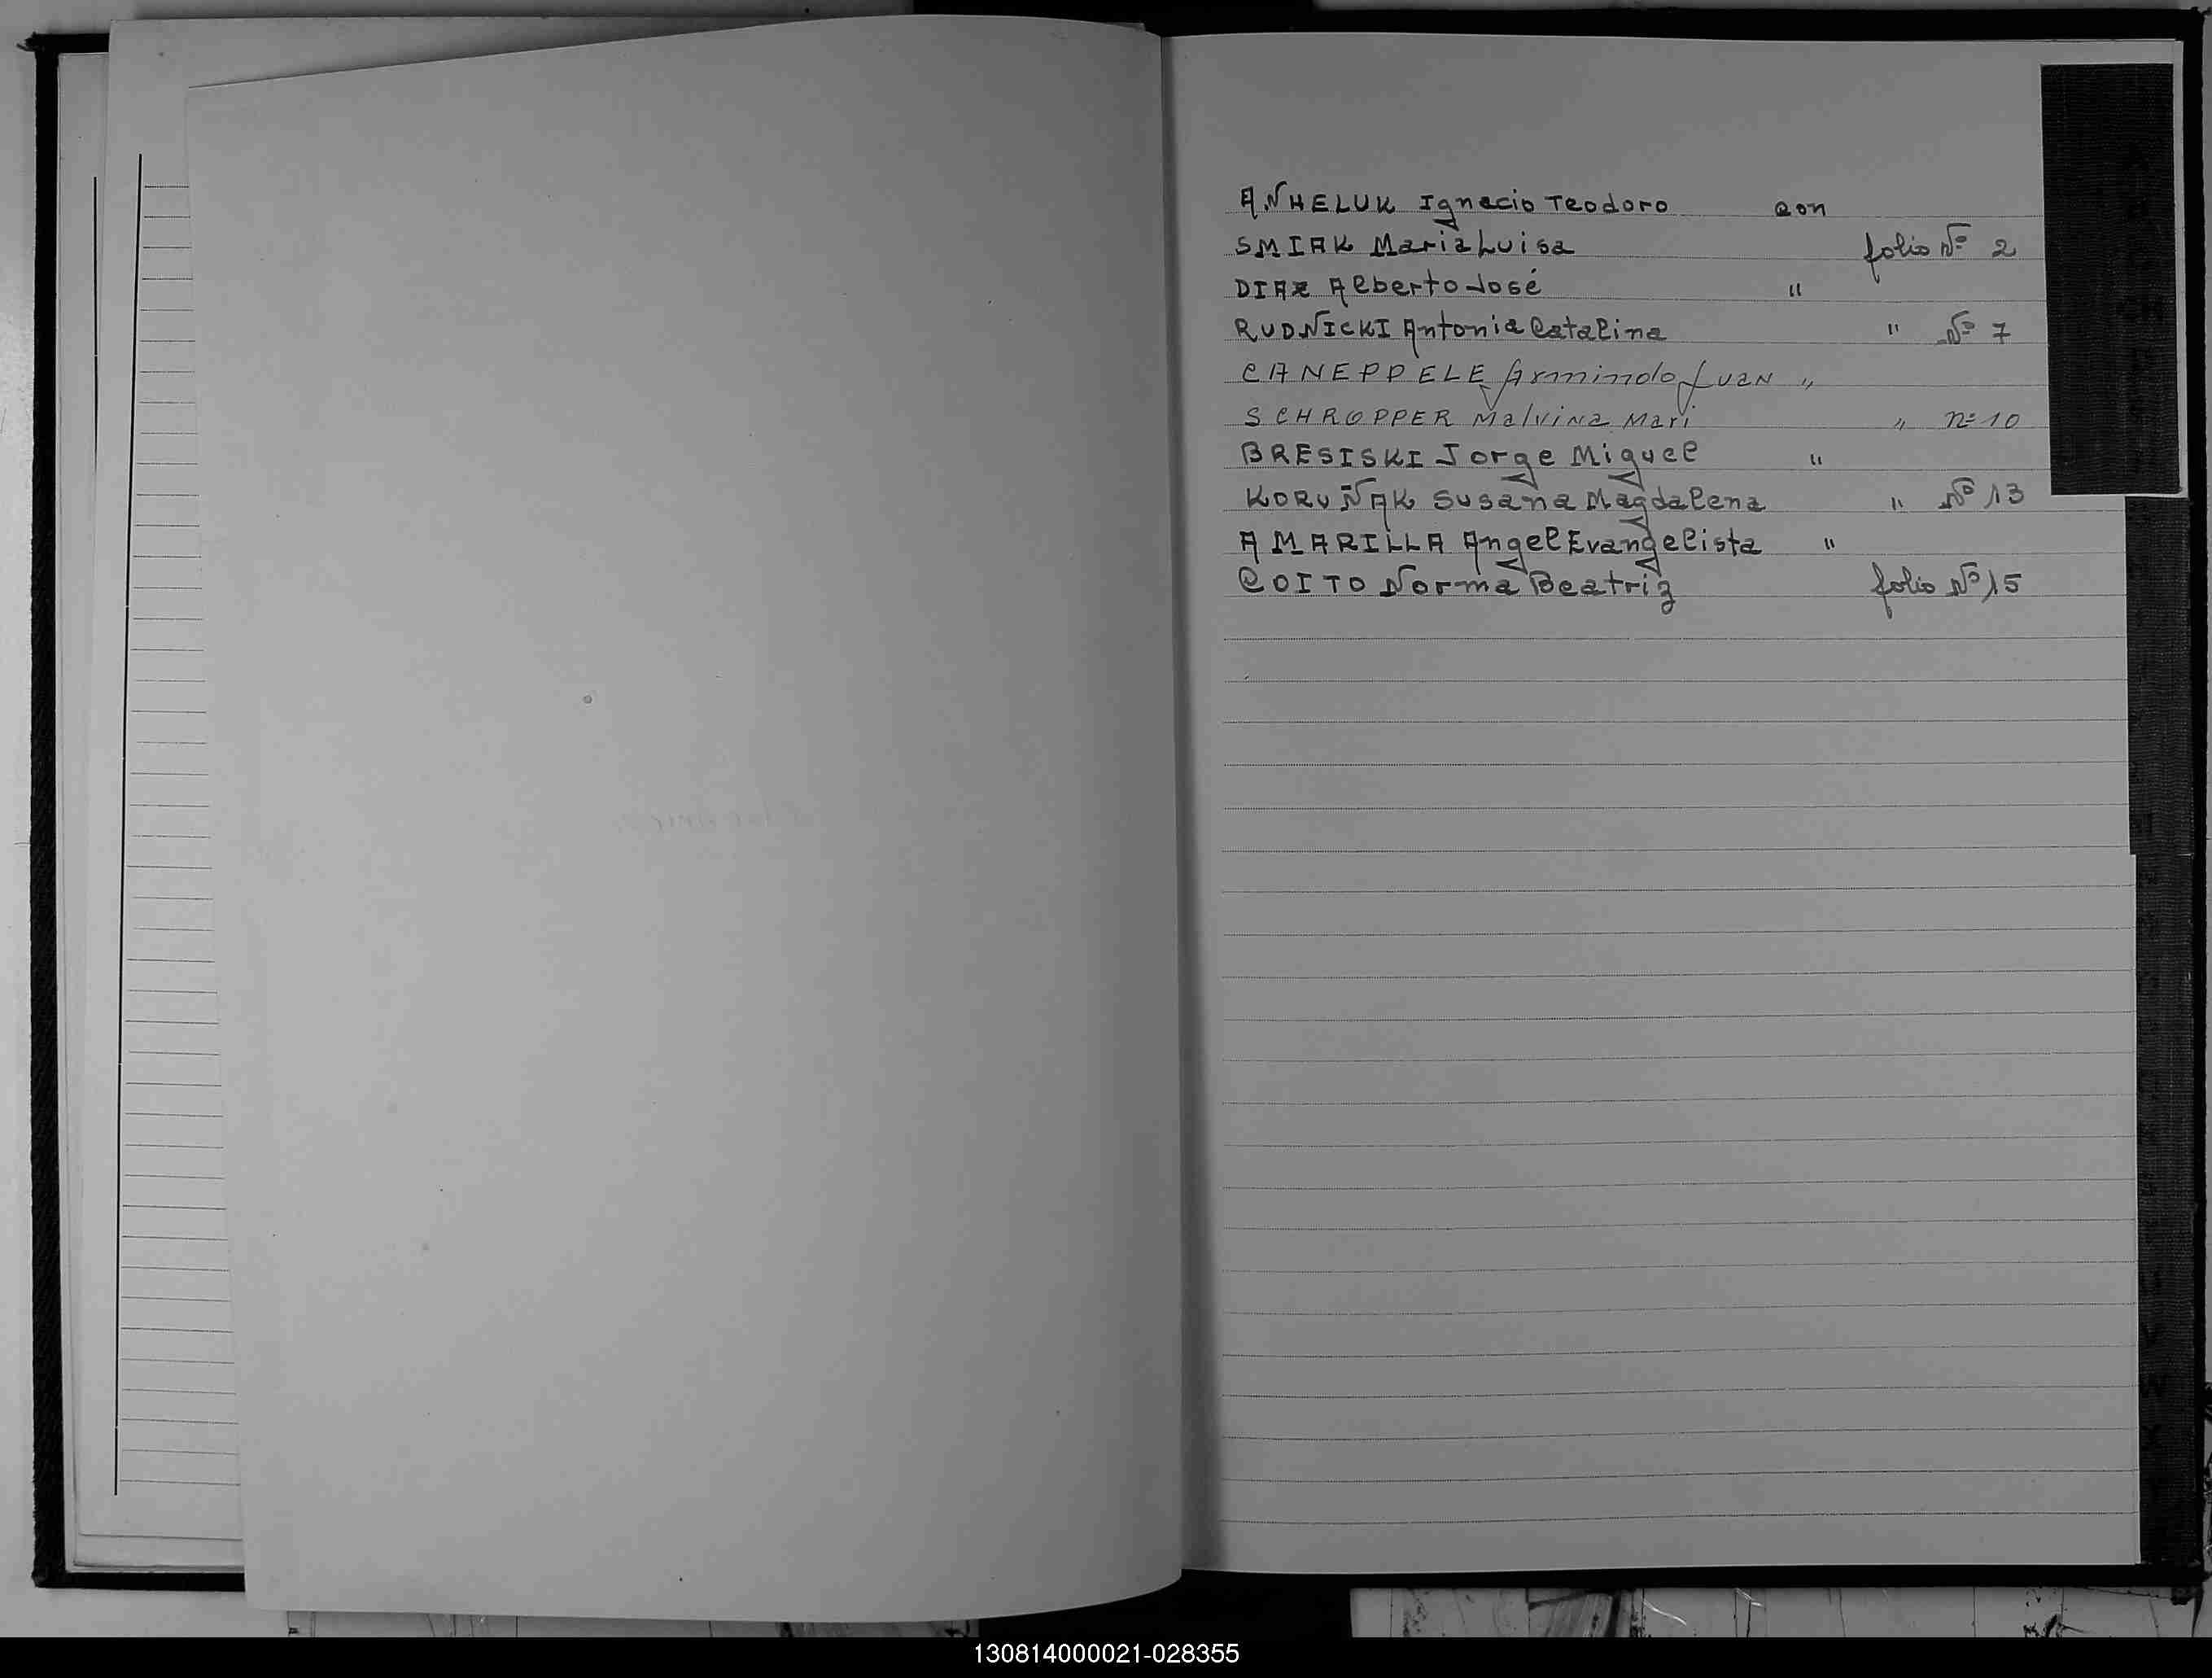 AÑHELUK Ignacio Teodoro con
SMIAK Maria Luisa folio Nº 2
DIAZ Alberto José "
RUDNICKI Antonia Catalina " Nº 7
CANEPPELE Armindo Juan "
SCHROPPER Malvina Mari " nº 10
BRESISKI Jorge Miguel "
KORUÑAK Susana Magdalena " Nº 13
AMARILLA Angel Evangelista "
COITO Norma Beatriz folio Nº 15
130814000021-028355